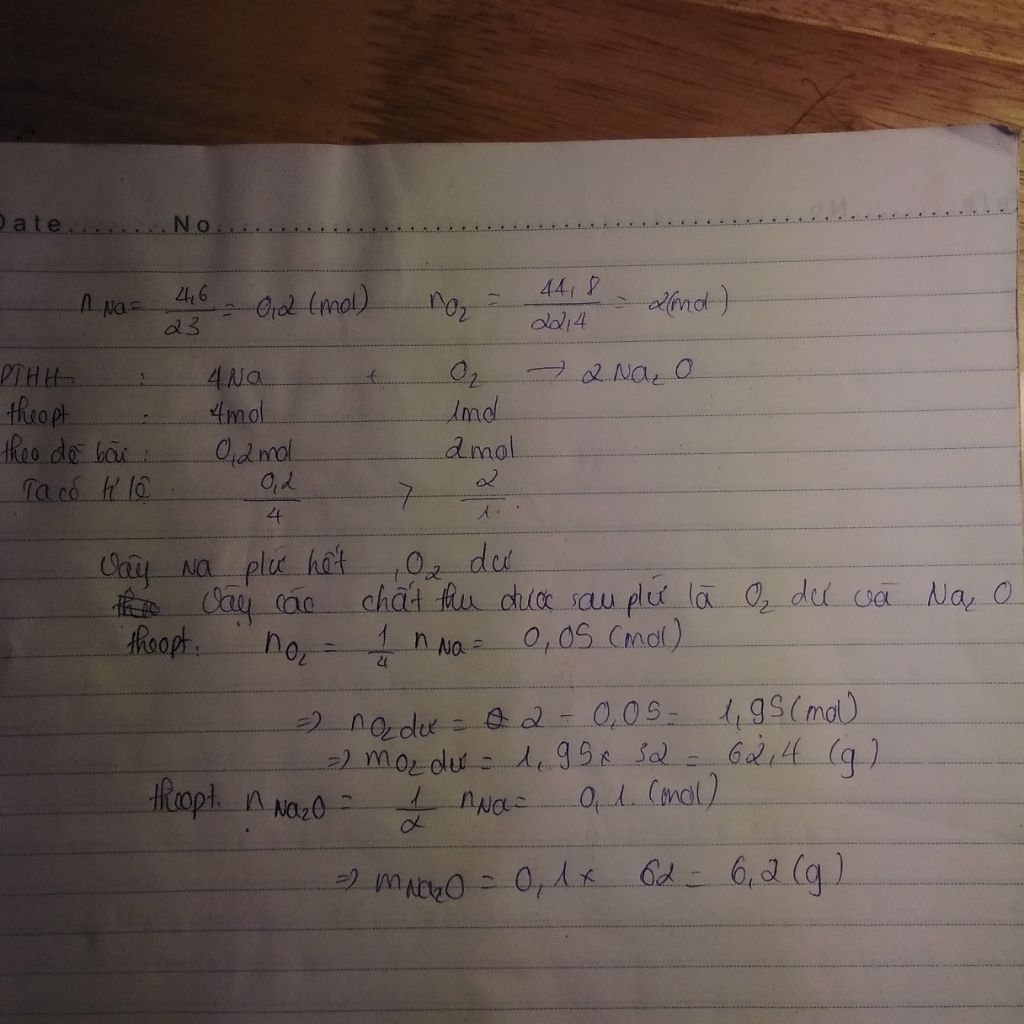 Date........No........
n Na = 4,6/23 = 0,2 (mol) nO₂ = 44,8/22,4 = 2(mol)
PTHH : 4Na + O₂ → 2Na₂O
theopt : 4mol 1mol
theo đề bài : 0,2mol 2mol
Ta có tỉ lệ 0,2/4 > 2/1
Vậy Na pứ hết, O₂ dư
Vậy các chất thu được sau pứ là O₂ dư và Na₂O
theopt: nO₂ = 1/4 n Na = 0,05 (mol)
=> nO₂ dư = 2 - 0,05 = 1,95 (mol)
=> mO₂ dư = 1,95 x 32 = 62,4 (g)
theopt. n Na₂O = 1/2 nNa = 0,1 (mol)
=> mNa₂O = 0,1 x 62 = 6,2 (g)